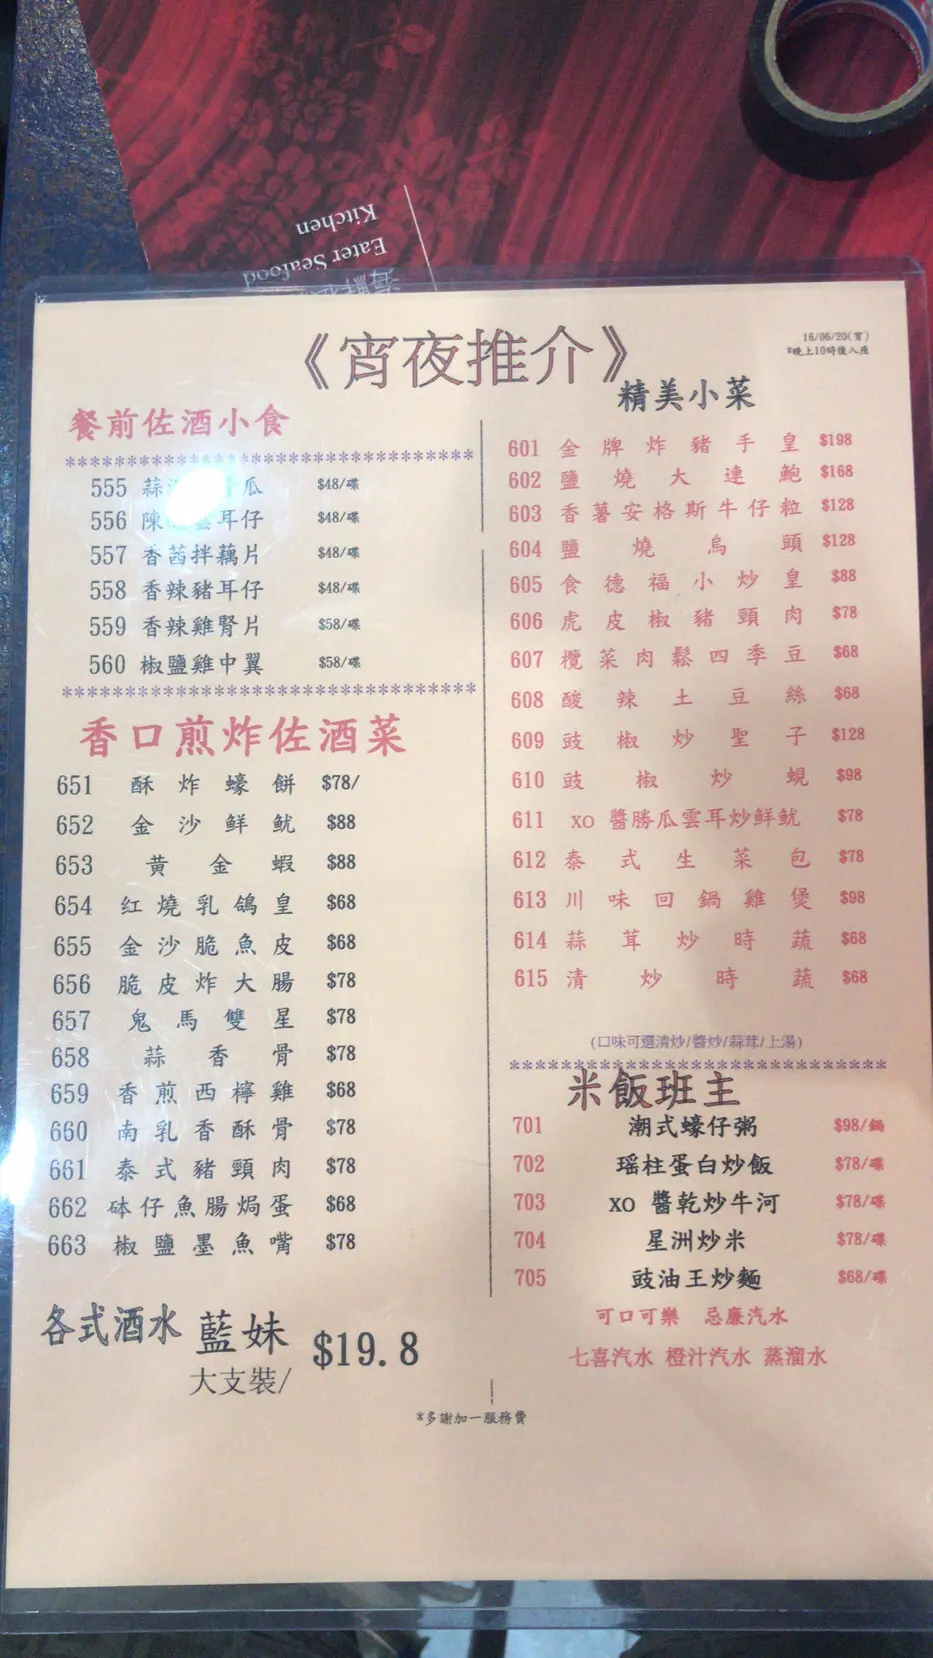 Kitchen
Eater Seafood
《宵夜推介》
16/06/20(宵)
*晚上10時後入座
餐前佐酒小食
********************************
555 蒜 瓜 $48/碟
556 陳 耳仔 $48/碟
557 香茜拌藕片 $48/碟
558 香辣豬耳仔 $48/碟
559 香辣雞腎片 $58/碟
560 椒鹽雞中翼 $58/碟
********************************
香口煎炸佐酒菜
651 酥炸蠔餅 $78/
652 金沙鮮魷 $88
653 黄金蝦 $88
654 红燒乳鴿皇 $68
655 金沙脆魚皮 $68
656 脆皮炸大腸 $78
657 鬼馬雙星 $78
658 蒜香骨 $78
659 香煎西檸雞 $68
660 南乳香酥骨 $78
661 泰式豬頸肉 $78
662 砵仔魚腸焗蛋 $68
663 椒鹽墨魚嘴 $78
各式酒水 藍妹 $19.8
大支裝/
精美小菜
601 金牌炸豬手皇 $198
602 鹽燒大連鮑 $168
603 香薯安格斯牛仔粒 $128
604 鹽燒烏頭 $128
605 食德福小炒皇 $88
606 虎皮椒豬頸肉 $78
607 欖菜肉鬆四季豆 $68
608 酸辣土豆絲 $68
609 豉椒炒聖子 $128
610 豉椒炒蜆 $98
611 XO 醬勝瓜雲耳炒鮮魷 $78
612 泰式生菜包 $78
613 川味回鍋雞煲 $98
614 蒜茸炒時蔬 $68
615 清炒時蔬 $68
(口味可選清炒/醬炒/蒜茸/上湯)
*****************************
米飯班主
701 潮式蠔仔粥 $98/鍋
702 瑶柱蛋白炒飯 $78/碟
703 XO 醬乾炒牛河 $78/碟
704 星洲炒米 $78/碟
705 豉油王炒麵 $68/碟
可口可樂 忌廉汽水
七喜汽水 橙汁汽水 蒸溜水
*多謝加一服務費